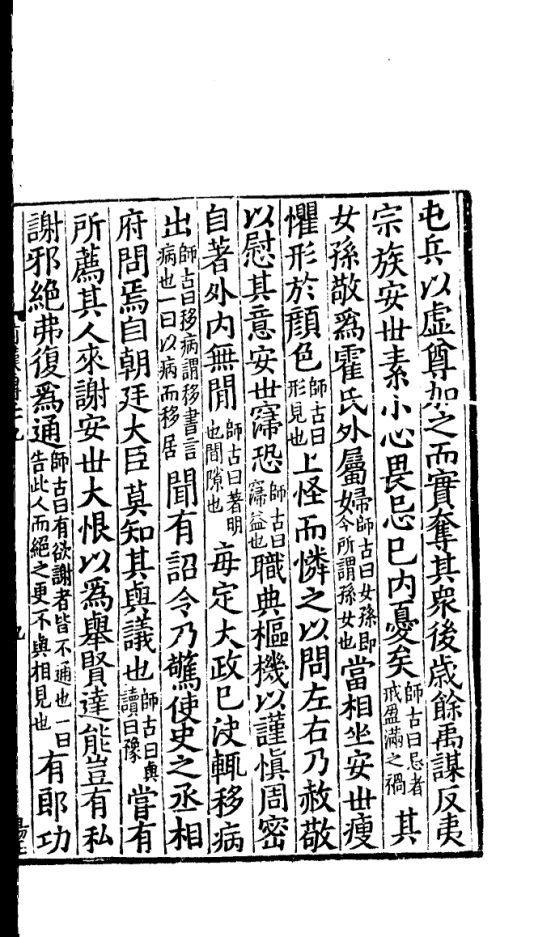 屯兵以虚尊加之而實奪其衆後歳餘禹謀反夷
宗族安世素小心畏忌已内憂矣師古曰忌者戒盈滿之禍其
女孫敬爲霍氏外屬婦師古曰女孫即今所謂孫女也當相坐安世瘦
懼形於顔色師古曰形見也上怪而憐之以問左右乃赦敬
以慰其意安世寖恐師古曰寖益也職典樞機以謹愼周密
自著外内無閒師古曰著明也閒隙也毎定大政已決輒移病
出師古曰移病謂移書言病也一曰以病而移居聞有詔令乃驚使吏之丞相
府問焉自朝廷大臣莫知其與議也師古曰與讀曰豫嘗有
所薦其人來謝安世大恨以爲舉賢達能豈有私
謝邪絶弗復爲通師古曰有欲謝者皆不通也一曰告此人而絶之更不與相見也有郎功